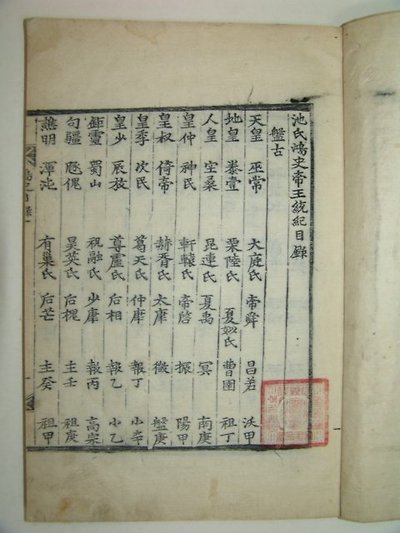 池氏鴻史帝王統紀目錄
盤古
天皇 巫常 大庭氏 帝舜 昌若 沃甲
地皇 泰壹 栗陸氏 夏姒氏 曹圉 祖丁
人皇 空桑 昆連氏 夏禹 冥 南庚
皇仲 神民 軒轅氏 帝啓 振 陽甲
皇叔 倚帝 赫胥氏 太康 微 盤庚
皇季 次民 葛天氏 仲康 報丁 小辛
皇少 辰放 尊盧氏 后相 報乙 小乙
鉅靈 蜀山 祝融氏 少康 報丙 高宗
句疆 昊英氏 后槐 主壬 祖庚
譙明 渾沌 有巢氏 后芒 主癸 祖甲